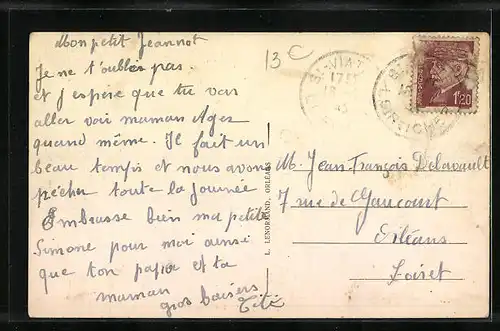 Mon petit Jeannot
Je ne t'oublie pas
et j'espère que tu vas
aller voir maman Agez
quand même. Il fait un
beau temps et nous avons
pêcher toute la journée
Embrasse bien ma petite
Simone pour moi ainsi
que ton papa et ta
maman
gros baisers
Tité
13 €
L. LENORMAND, ORLÉANS
ST-VIAT
LOIR-ET-CHER
1F20
M. Jean-François Delavault
7 rue de Gaucourt
Orléans
Loiret